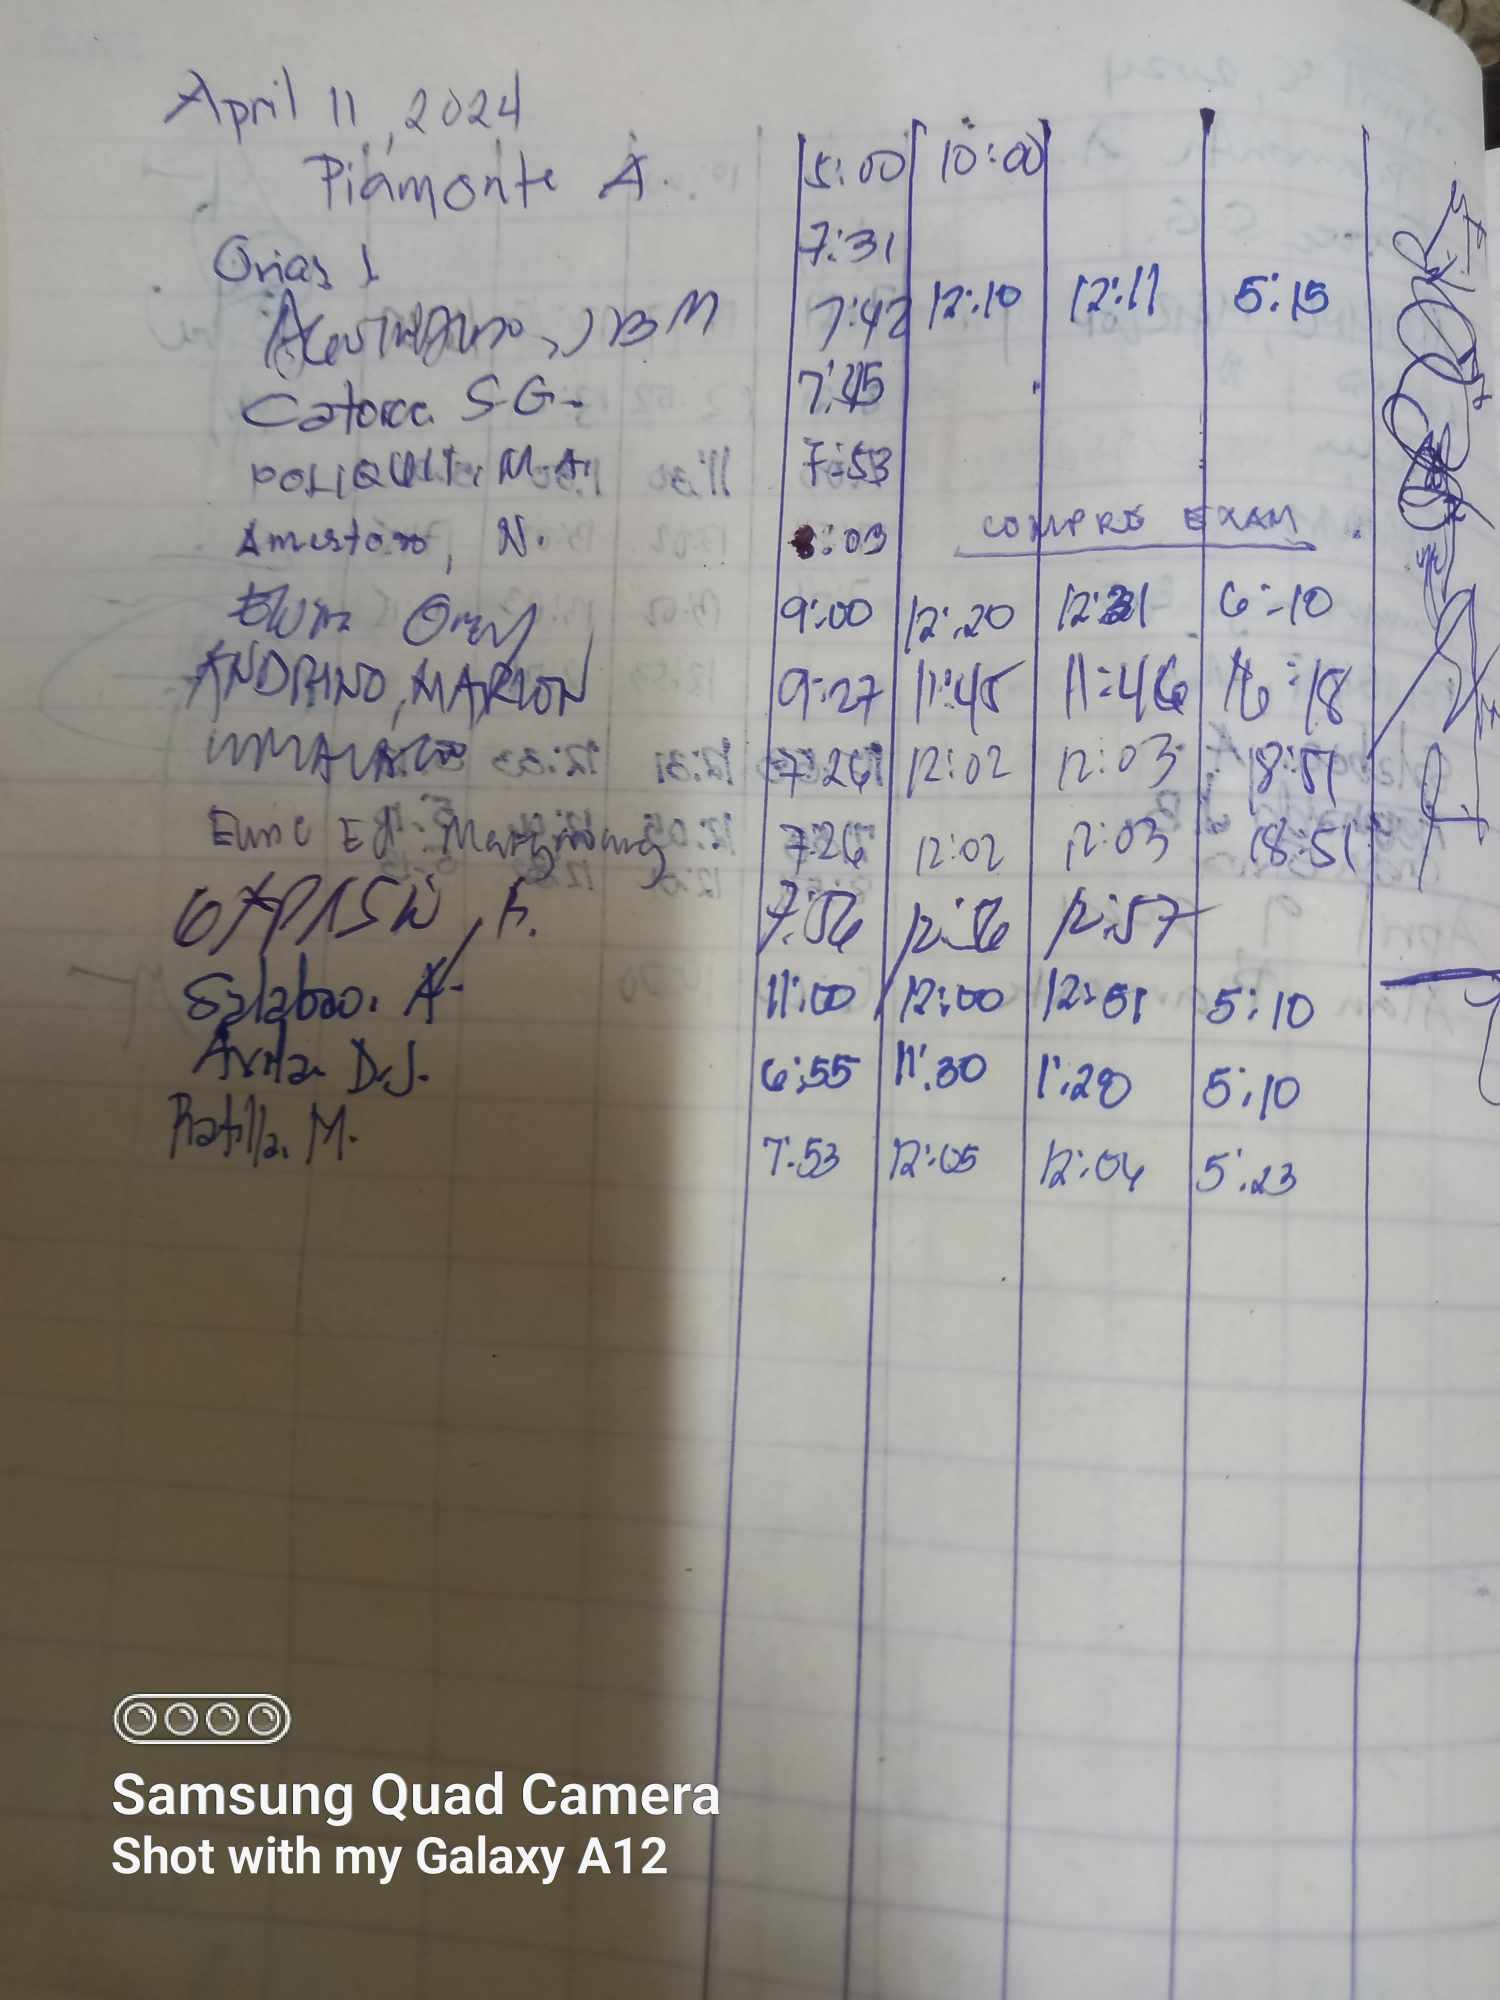 April 11, 2024
Piamonte A. 5:00 10:00
Orias J 7:31
JBM 7:42 12:10 12:11 5:15
Catoera S.G. 7:45
POLIQUIT, M.A. 7:53
N. 8:03 COMPRE EXAM.
9:00 12:20 12:31 6:10
ANDRINO, MARION 9:27 11:45 11:46 16:18
7:26 12:02 12:03 18:51
7:26 12:02 12:03 18:51
7:56 12:56 12:57
Salabao. A- 11:00 12:00 12:51 5:10
Avila D.J. 6:55 11:30 1:20 5:10
Ratilla. M. 7:53 12:05 12:06 5:23
Samsung Quad Camera
Shot with my Galaxy A12